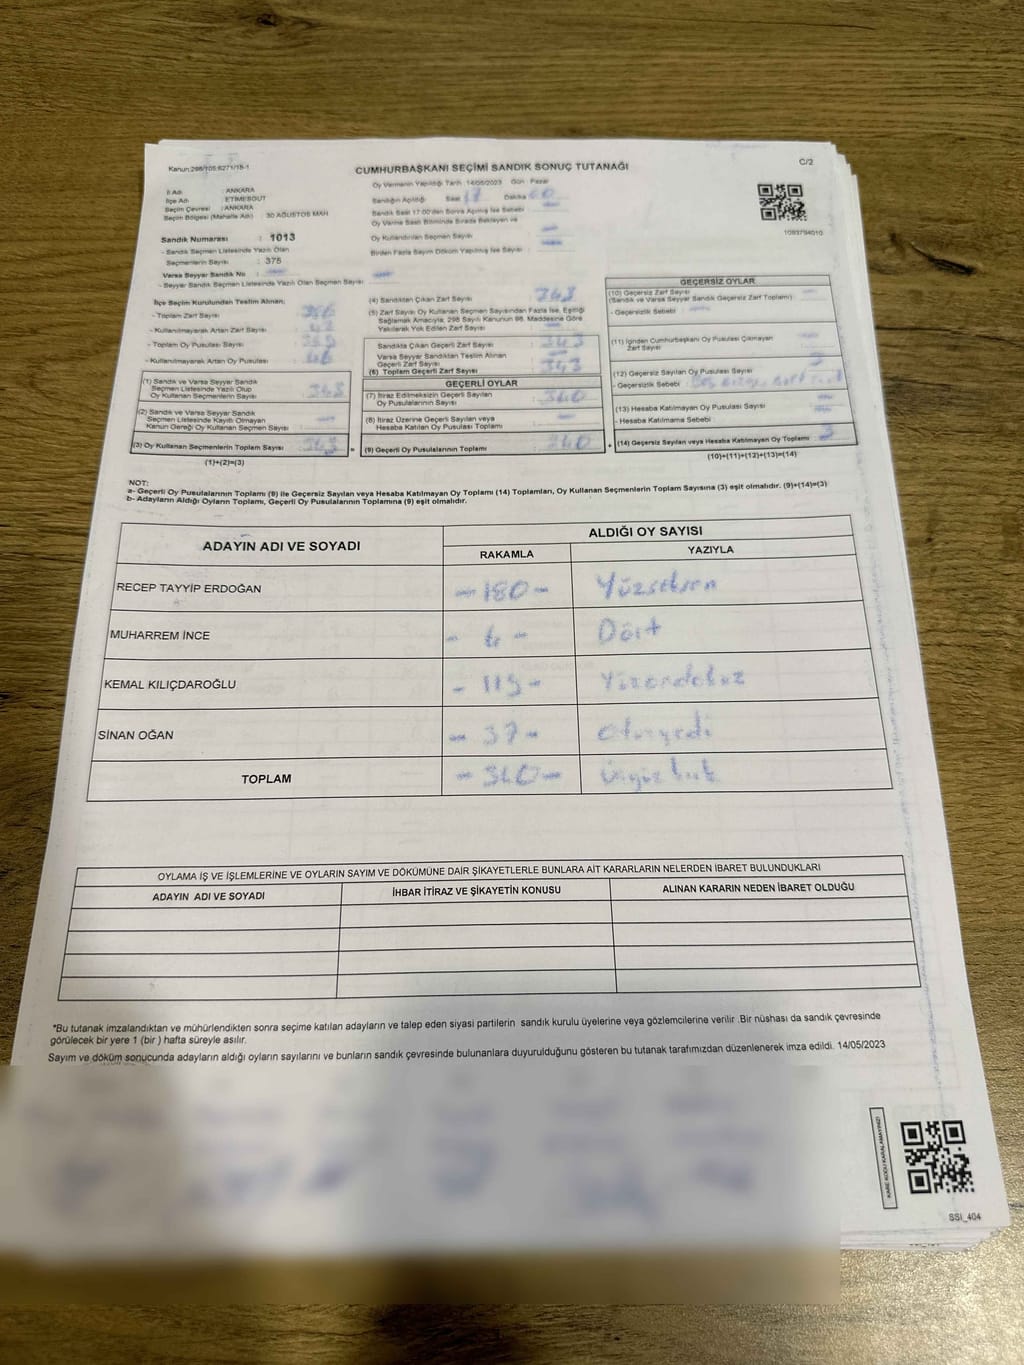 Kanun:298/105:6271/15-1
CUMHURBAŞKANI SEÇİMİ SANDIK SONUÇ TUTANAĞI
C/2
İl Adı : ANKARA
İlçe Adı : ETİMESGUT
Seçim Çevresi : ANKARA
Seçim Bölgesi (Mahalle Adı) : 30 AĞUSTOS MAH
Oy Vermenin Yapıldığı Tarih :14/05/2023 Gün : Pazar
Sandığın Açıldığı Saat 17 Dakika 00
Sandık Saat 17:00'den Sonra Açılmış İse Sebebi
Oy Verme Saati Bitiminde Sırada Bekleyen ve
Oy Kullandırılan Seçmen Sayısı
Birden Fazla Sayım Döküm Yapılmış İse Sayısı :
1093794010
Sandık Numarası : 1013
- Sandık Seçmen Listesinde Yazılı Olan
Seçmenlerin Sayısı : 375
Varsa Seyyar Sandık No :
- Seyyar Sandık Seçmen Listesinde Yazılı Olan Seçmen Sayısı
İlçe Seçim Kurulundan Teslim Alınan;
- Toplam Zarf Sayısı
- Kullanılmayarak Artan Zarf Sayısı
- Toplam Oy Pusulası Sayısı
- Kullanılmayarak Artan Oy Pusulası
(1) Sandık ve Varsa Seyyar Sandık
Seçmen Listesinde Yazılı Olup
Oy Kullanan Seçmenlerin Sayısı 343
(2) Sandık ve Varsa Seyyar Sandık
Seçmen Listesinde Kayıtlı Olmayan
Kanun Gereği Oy Kullanan Seçmen Sayısı
(3) Oy Kullanan Seçmenlerin Toplam Sayısı 343
(1)+(2)=(3)
(4) Sandıktan Çıkan Zarf Sayısı 343
(5) Zarf Sayısı Oy Kullanan Seçmen Sayısından Fazla İse, Eşitliği
Sağlamak Amacıyla; 298 Sayılı Kanunun 98. Maddesine Göre
Yakılarak Yok Edilen Zarf Sayısı
Sandıkta Çıkan Geçerli Zarf Sayısı 343
Varsa Seyyar Sandıktan Teslim Alınan
Geçerli Zarf Sayısı
(6) Toplam Geçerli Zarf Sayısı 343
GEÇERLİ OYLAR
(7) İtiraz Edilmeksizin Geçerli Sayılan
Oy Pusulalarının Sayısı 340
(8) İtiraz Üzerine Geçerli Sayılan veya
Hesaba Katılan Oy Pusulası Toplamı
= (9) Geçerli Oy Pusulalarının Toplamı 340
GEÇERSİZ OYLAR
(10) Geçersiz Zarf Sayısı
(Sandık ve Varsa Seyyar Sandık Geçersiz Zarf Toplamı)
- Geçersizlik Sebebi :
(11) İçinden Cumhurbaşkanı Oy Pusulası Çıkmayan
Zarf Sayısı
(12) Geçersiz Sayılan Oy Pusulası Sayısı 3
- Geçersizlik Sebebi
(13) Hesaba Katılmayan Oy Pusulası Sayısı
- Hesaba Katılmama Sebebi
+ (14) Geçersiz Sayılan veya Hesaba Katılmayan Oy Toplamı 3
(10)+(11)+(12)+(13)=(14)
NOT:
a- Geçerli Oy Pusulalarının Toplamı (9) ile Geçersiz Sayılan veya Hesaba Katılmayan Oy Toplamı (14) Toplamları, Oy Kullanan Seçmenlerin Toplam Sayısına (3) eşit olmalıdır. (9)+(14)=(3)
b- Adayların Aldığı Oyların Toplamı, Geçerli Oy Pusulalarının Toplamına (9) eşit olmalıdır.
ADAYIN ADI VE SOYADI
ALDIĞI OY SAYISI
RAKAMLA YAZIYLA
RECEP TAYYİP ERDOĞAN - 180 - Yüzseksen
MUHARREM İNCE - 4 - Dört
KEMAL KILIÇDAROĞLU - 119 - Yüzondokuz
SİNAN OĞAN - 37 - Otuzyedi
TOPLAM - 340 - Üçyüzkırk
OYLAMA İŞ VE İŞLEMLERİNE VE OYLARIN SAYIM VE DÖKÜMÜNE DAİR ŞİKAYETLERLE BUNLARA AİT KARARLARIN NELERDEN İBARET BULUNDUKLARI
ADAYIN ADI VE SOYADI İHBAR İTİRAZ VE ŞİKAYETİN KONUSU ALINAN KARARIN NEDEN İBARET OLDUĞU
*Bu tutanak imzalandıktan ve mühürlendikten sonra seçime katılan adayların ve talep eden siyasi partilerin sandık kurulu üyelerine veya gözlemcilerine verilir .Bir nüshası da sandık çevresinde
görülecek bir yere 1 (bir ) hafta süreyle asılır.
Sayım ve döküm sonucunda adayların aldığı oyların sayılarını ve bunların sandık çevresinde bulunanlara duyurulduğunu gösteren bu tutanak tarafımızdan düzenlenerek imza edildi. 14/05/2023
KARE KODU KARALAMAYINIZ!
SSI_404